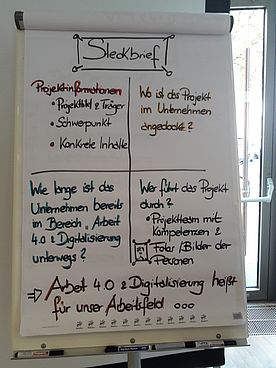 Steckbrief
Projektinformationen
• Projekttitel & Träger
• Schwerpunkt
• Konkrete Inhalte
Wo ist das Projekt
im Unternehmen
angedockt?
Wie lange ist das
Unternehmen bereits
im Bereich „Arbeit
4.0 & Digitalisierung
unterwegs?
Wer führt das Projekt
durch?
• Projektteam mit
Kompetenzen &
Fotos/Bilder der
Personen
⇒ Arbeit 4.0 & Digitalisierung heißt
für unser Arbeitsfeld ...